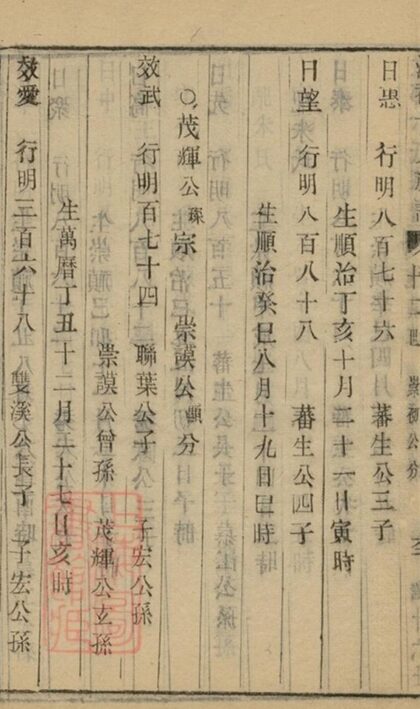 日思 行明八百七十六 蕃生公三子
生順治丁亥十月二十一日寅時
日望 行明八百八十八 蕃生公四子
生順治癸巳八月十九日巳時
○茂輝公 宗 崇謨公 分
效武 行明百七十四 聯葉公子 子宏公孫
崇謨公曾孫 茂輝公玄孫
生萬曆丁丑十二月二十七日亥時
效愛 行明三百六十八 雙溪公長子 子宏公孫